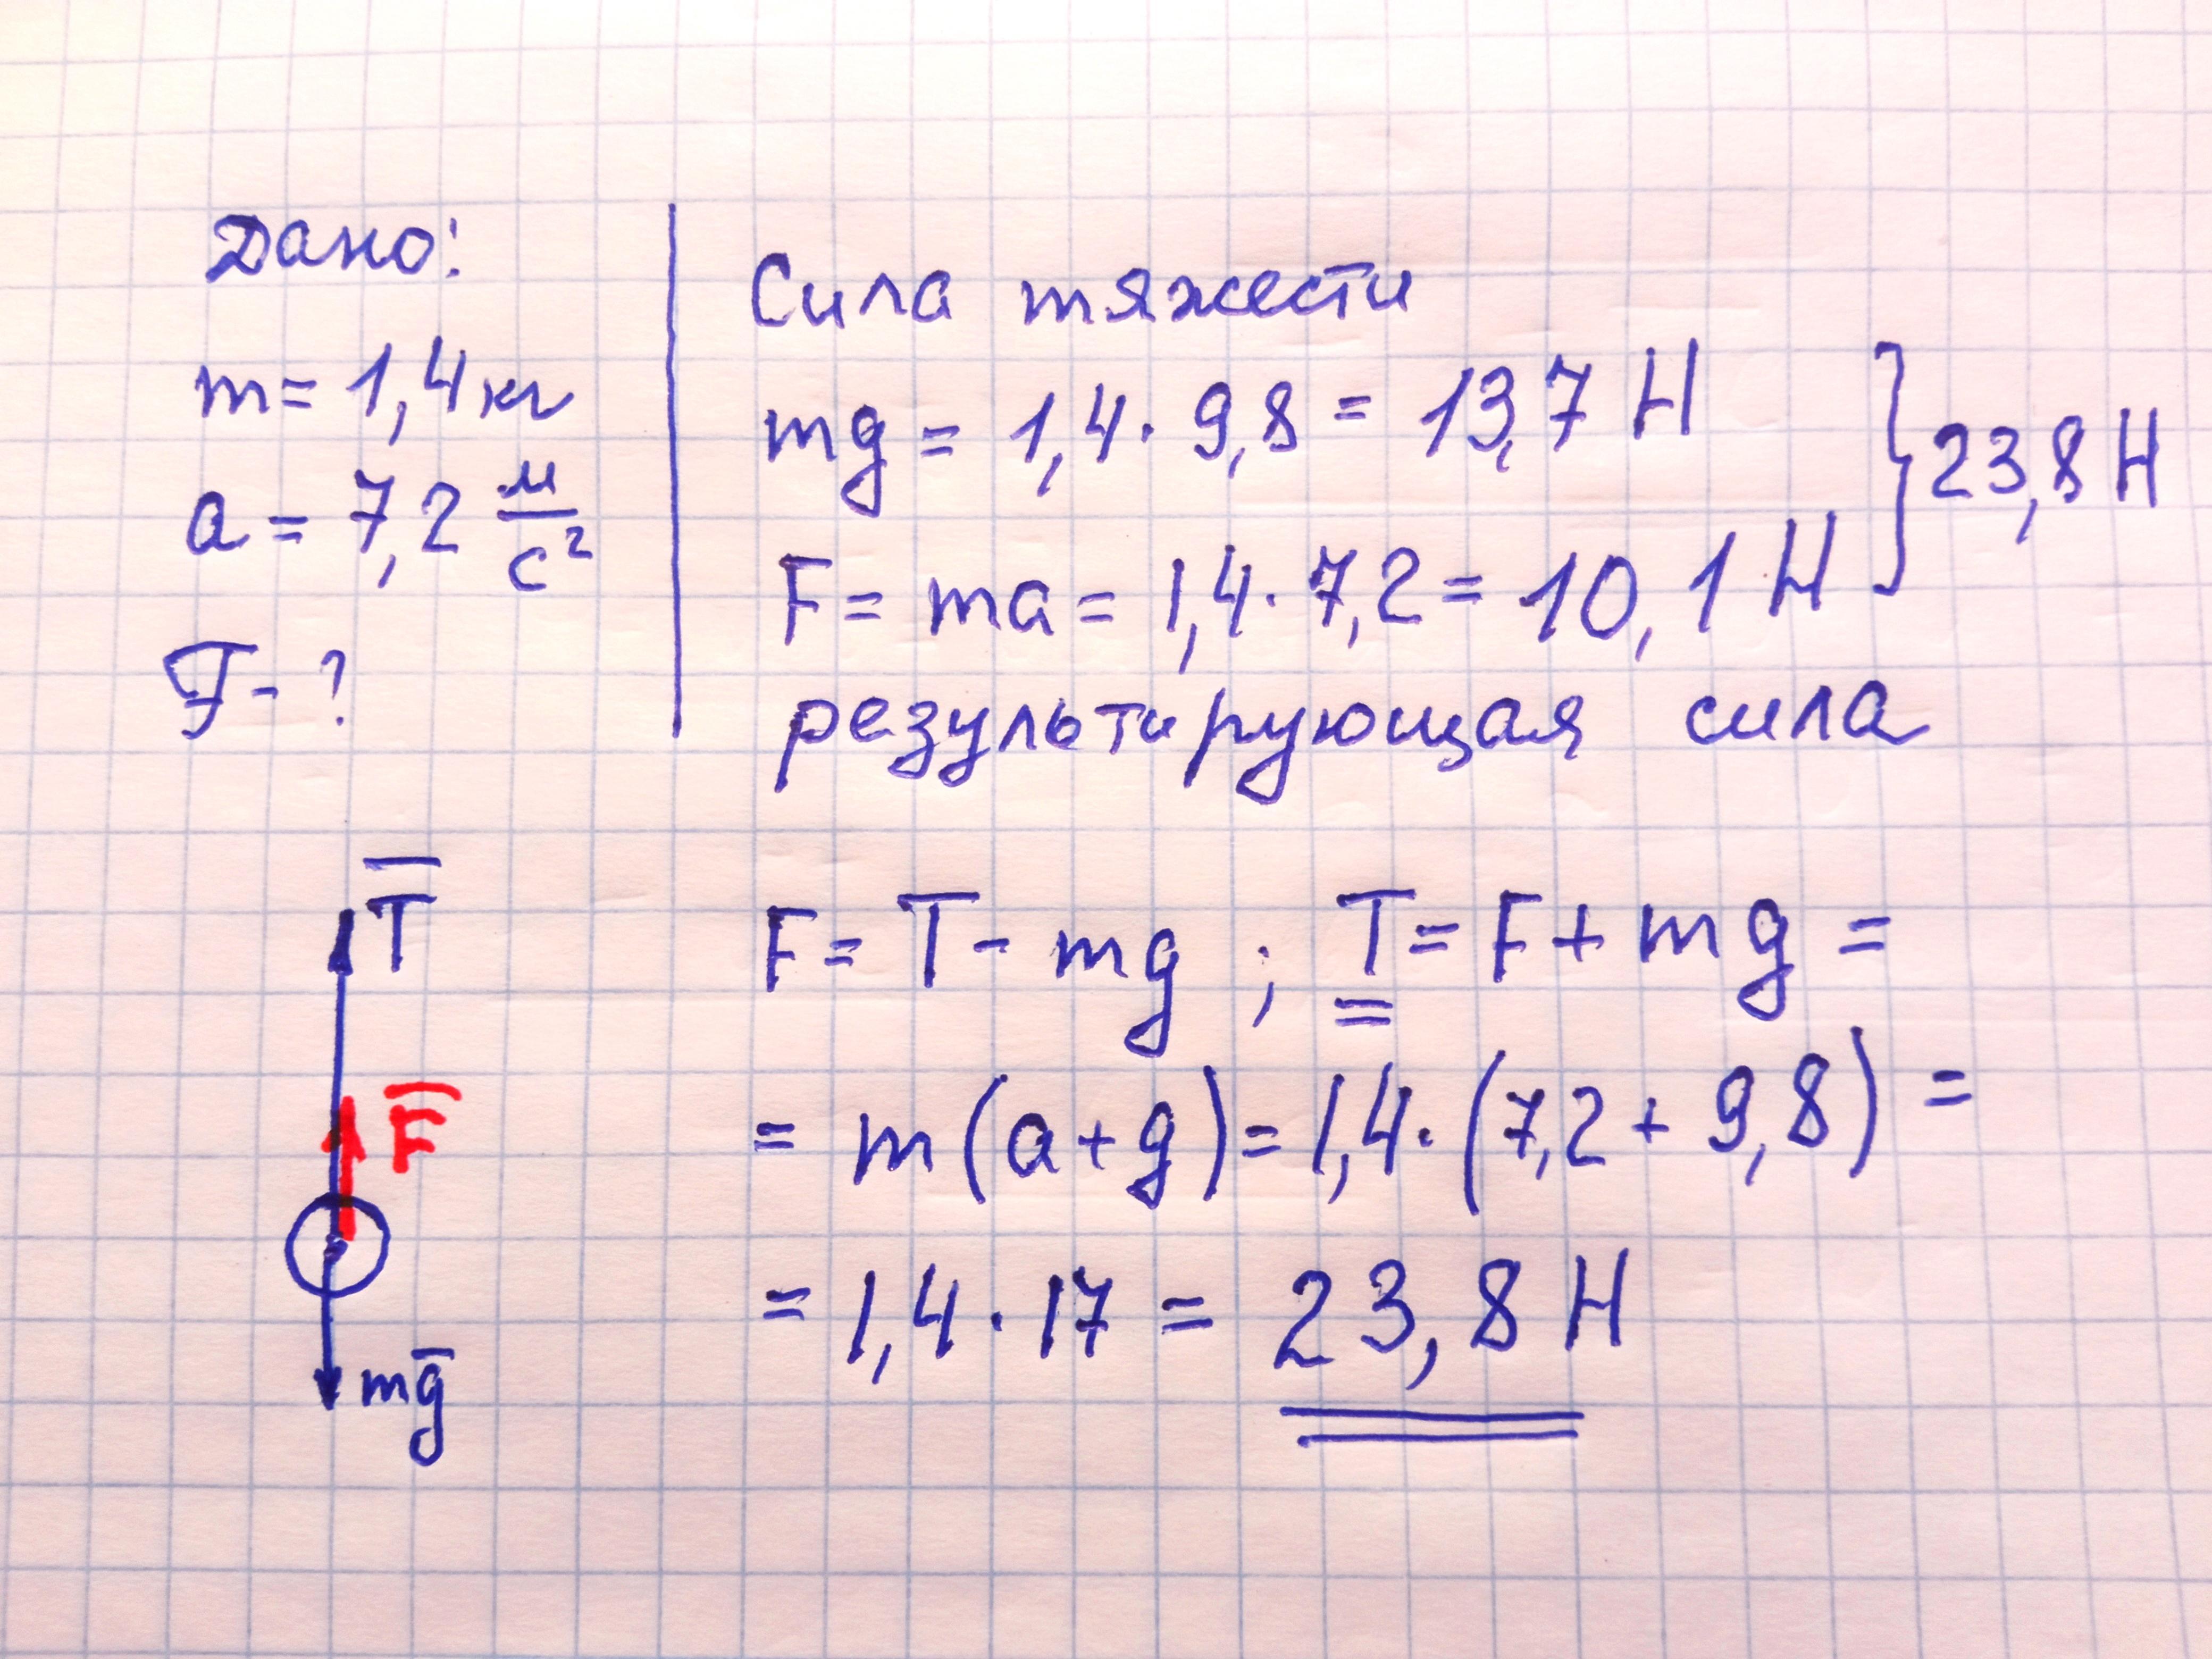 Дано:
m = 1,4 кг
a = 7,2 м/с²
F - ?
Сила тяжести
mg = 1,4 · 9,8 = 13,7 Н
F = ma = 1,4 · 7,2 = 10,1 Н
} 23,8 Н
результирующая сила
T̅
F̅
mg̅
F = T - mg ; T = F + mg =
= m(a + g) = 1,4 · (7,2 + 9,8) =
= 1,4 · 17 = 23,8 Н